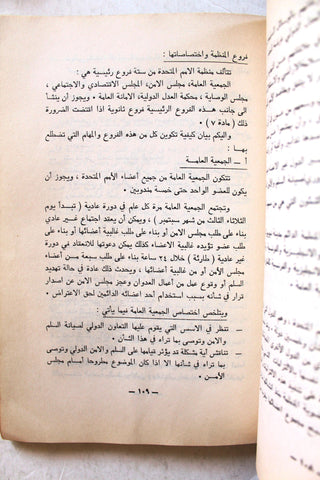 فروع المنظمة واختصاصاتها :
تتألف منظمة الامم المتحدة من ستة فروع رئيسية هي :
الجمعية العامة، مجلس الامن، المجلس الاقتصادي والاجتماعي ،
مجلس الوصاية ، محكمة العدل الدولية، الامانة العامة ٠ ويجوز أن ينشأ
الى جانب هذه الفروع الرئيسية فروع ثانوية اذا اقتضت الضرورة
ذلك ( مادة ٧ ) ٠
واليكم بيان كيفية تكوين كل من هذه الفروع والمهام التي تضطلع
بهـا :
١ – الجمعية العامـة
تتكون الجمعية العامة من جميع أعضاء الأمم المتحدة ، ويجوز أن
يكون للعضو الواحد حتى خمسة مندوبين ٠
وتجتمع الجمعية العامة مرة كل عام في دورة عادية ( تبـدأ يوم
الثلاثاء الثالث من شهر سبتمبر ) ، ويمكن أن يعقد اجتماع غير عادي
بناء على طلب مجلس الامن أو بناء على طلب غالبية أعضائها أو بناء على
طلب عضو تؤيده غالبية الاعضاء كذلك يمكن دعوتها للانعقاد في دورة
غير عادية ( طارئة ) خلال ٢٤ ساعة بناء على طلب سبعة من أعضاء
مجلس الأمن أو من غالبية أعضائها ، ويحدث ذلك عادة في حالة تهديد
السلم أو وقوع عمل من أعمال العدوان وعجز مجلس الامن عن اصدار
قرار في شأنه بسبب استخدام أحد أعضائه الدائمين لحق الاعتراض ٠
ويتلخص اختصاص الجمعية العامة فيما يأتي :
– تنظر في الاسس التي يقوم عليها التعاون الدولي لصيانة السلم
والامن وتوصى بما تراه في هذا الشأن ٠
– تناقش أية مشكلة قد يؤثر قيامها على السلم والامن الدولي وتوصى
بما تراه في شأنها الا اذا كان الموضوع مطروحا أمـام مجلس
الأمـن ٠
– ١٠٩ –